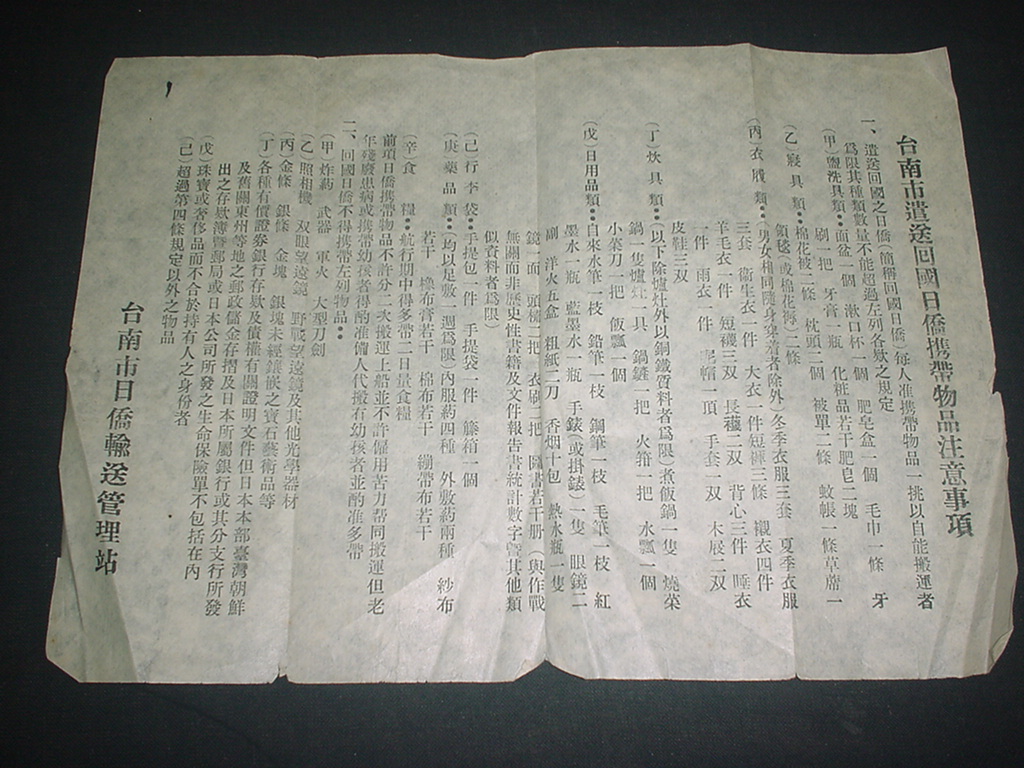 台南市遣送回國日僑携帶物品注意事項
一、遣送回國之日僑(簡稱回國日僑)每人准携帶物品一挑以自能搬運者
爲限其種類數量不能超過左列各欵之規定
(甲)盥洗具類:面盆一個 漱口杯一個 肥皂盒一個 毛巾一條 牙
刷一把 牙膏一瓶 化粧品若干肥皂二塊
(乙)寢具類:棉花被二條 枕頭二個 被單二條 蚊帳一條草蓆一
領毯(或棉花褥)二條
(丙)衣履類:男女相同隨身穿着者除外)冬季衣服三套 夏季衣服
三套 衞生衣一件 大衣一件短褲三條 襯衣四件
羊毛衣一件 短襪三双 長襪二双 背心三件 睡衣
一件 雨衣一件 呢帽一頂 手套一双 木屐二双
皮鞋三双
(丁)炊具類:(以下除爐灶外以銅鐵質料者爲限)煮飯鍋一隻 燒菜
鍋一隻爐灶一具 鍋鏟一把 火箝一把 水瓢一個
小菜刀一把 飯瓢一個
(戊)日用品類:自來水筆一枝 鉛筆一枝 鋼筆一枝 毛筆一枝 紅
墨水一瓶 藍墨水一瓶 手錶(或掛錶)一隻 眼鏡二
副 洋火五盒 粗紙二刀 香烟十包 熱水瓶一隻
鏡一面 頭梳二把 衣刷二把 圖書若干册(與作戰
無關而非歷史性書籍及文件報告書統計數字暨其他類
似資料者爲限)
(己)行李袋:手提包一件 手提袋一件 籐箱一個
(庚)藥品類:(均以足敷一週爲限)內服葯四種 外敷葯兩種 紗布
若干 橡布膏若干 棉布若干 綳帶布若干
(辛)食糧:航行期中得多帶二日量食糧
前項日僑携帶物品不許分二次搬運上船並不許僱用苦力帮同搬運但老
年殘廢患病或携帶幼孩者得酌准僱人代搬有幼孩者並酌准多帶
二、回國日僑不得携帶左列物品:
(甲)炸葯 武器 軍火 大型刀劍
(乙)照相機 双眼望遠鏡 野戰望遠鏡及其他光學器材
(丙)金條 銀條 金塊 銀塊未經鑲嵌之寶石藝術品等
(丁)各種有價證券銀行存欵及債權有關證明文件但日本本部臺灣朝鮮
及舊關東州等地之郵政儲金存摺及日本所屬銀行或其分支行所發
出之存欵簿暨郵局或日本公司所發之生命保險單不包括在內
(戊)珠寶或奢侈品而不合於持有人之身份者
(己)超過第四條規定以外之物品
台南市日僑輸送管理站